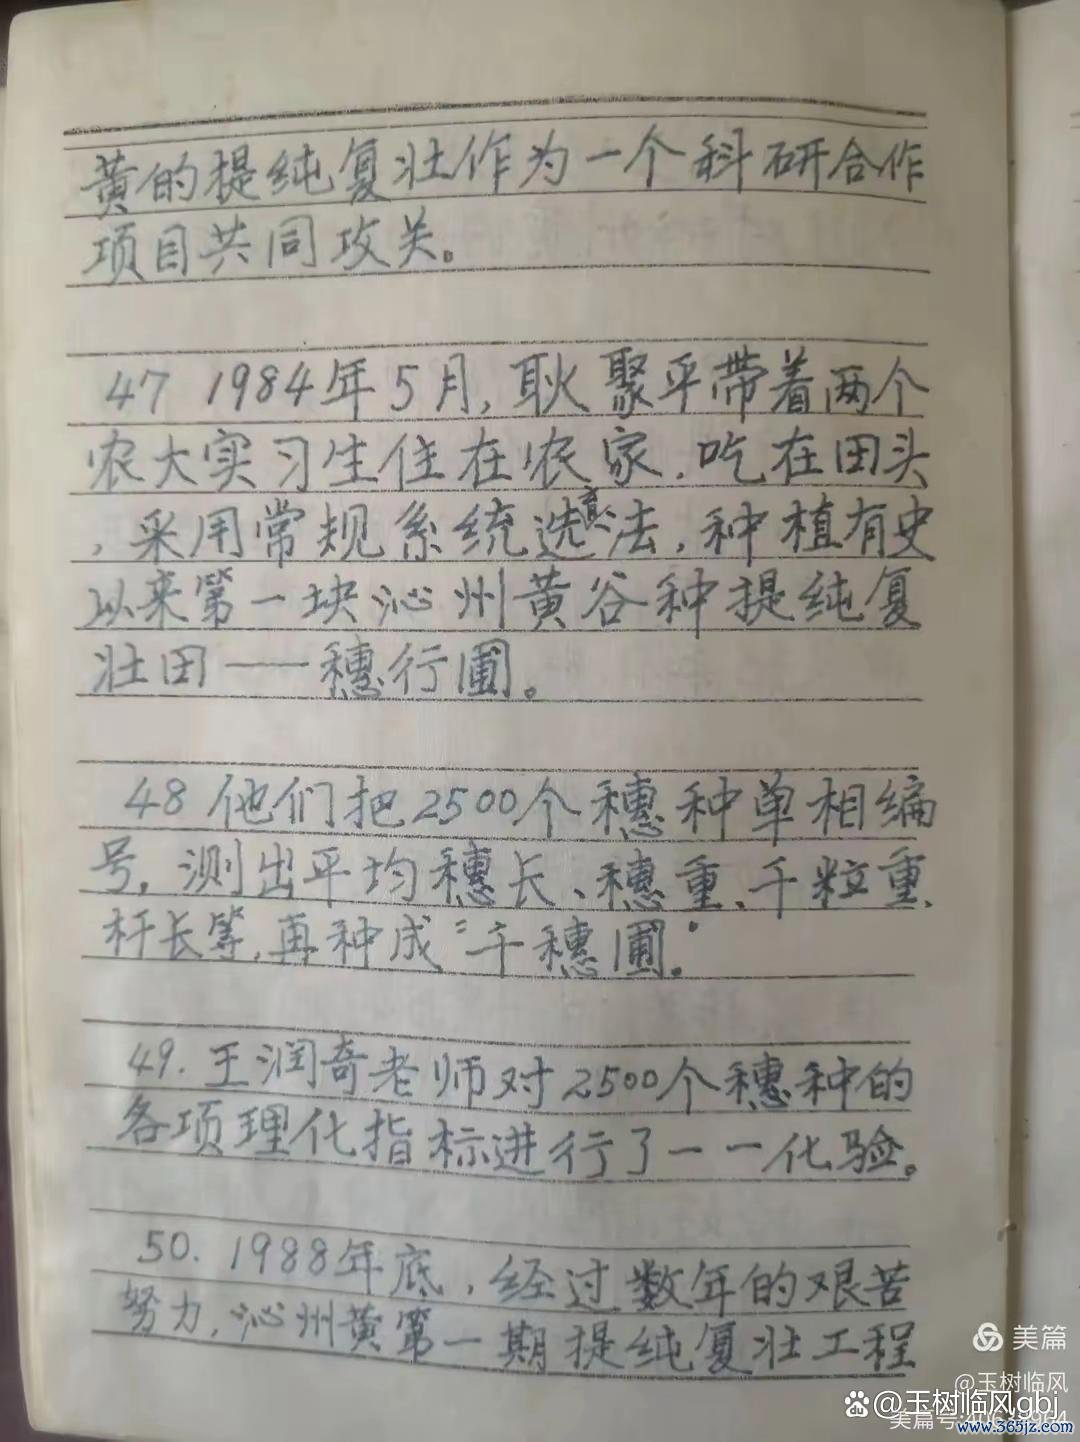 黄的提纯复壮作为一个科研合作
项目共同攻关。
47 1984年5月,耿聚平带着两个
农大实习生住在农家,吃在田头
,采用常规系统选育法,种植有史
以来第一块沁州黄谷种提纯复
壮田——穗行圃。
48 他们把2500个穗种单相编
号,测出平均穗长、穗重、千粒重、
杆长等,再种成“千穗圃”.
49.王润奇老师对2500个穗种的
各项理化指标进行了一一化验。
50.1988年底,经过数年的艰苦
努力,沁州黄第一期提纯复壮工程
美篇
@玉树临风
@玉树临风gbj
www.365jz.com